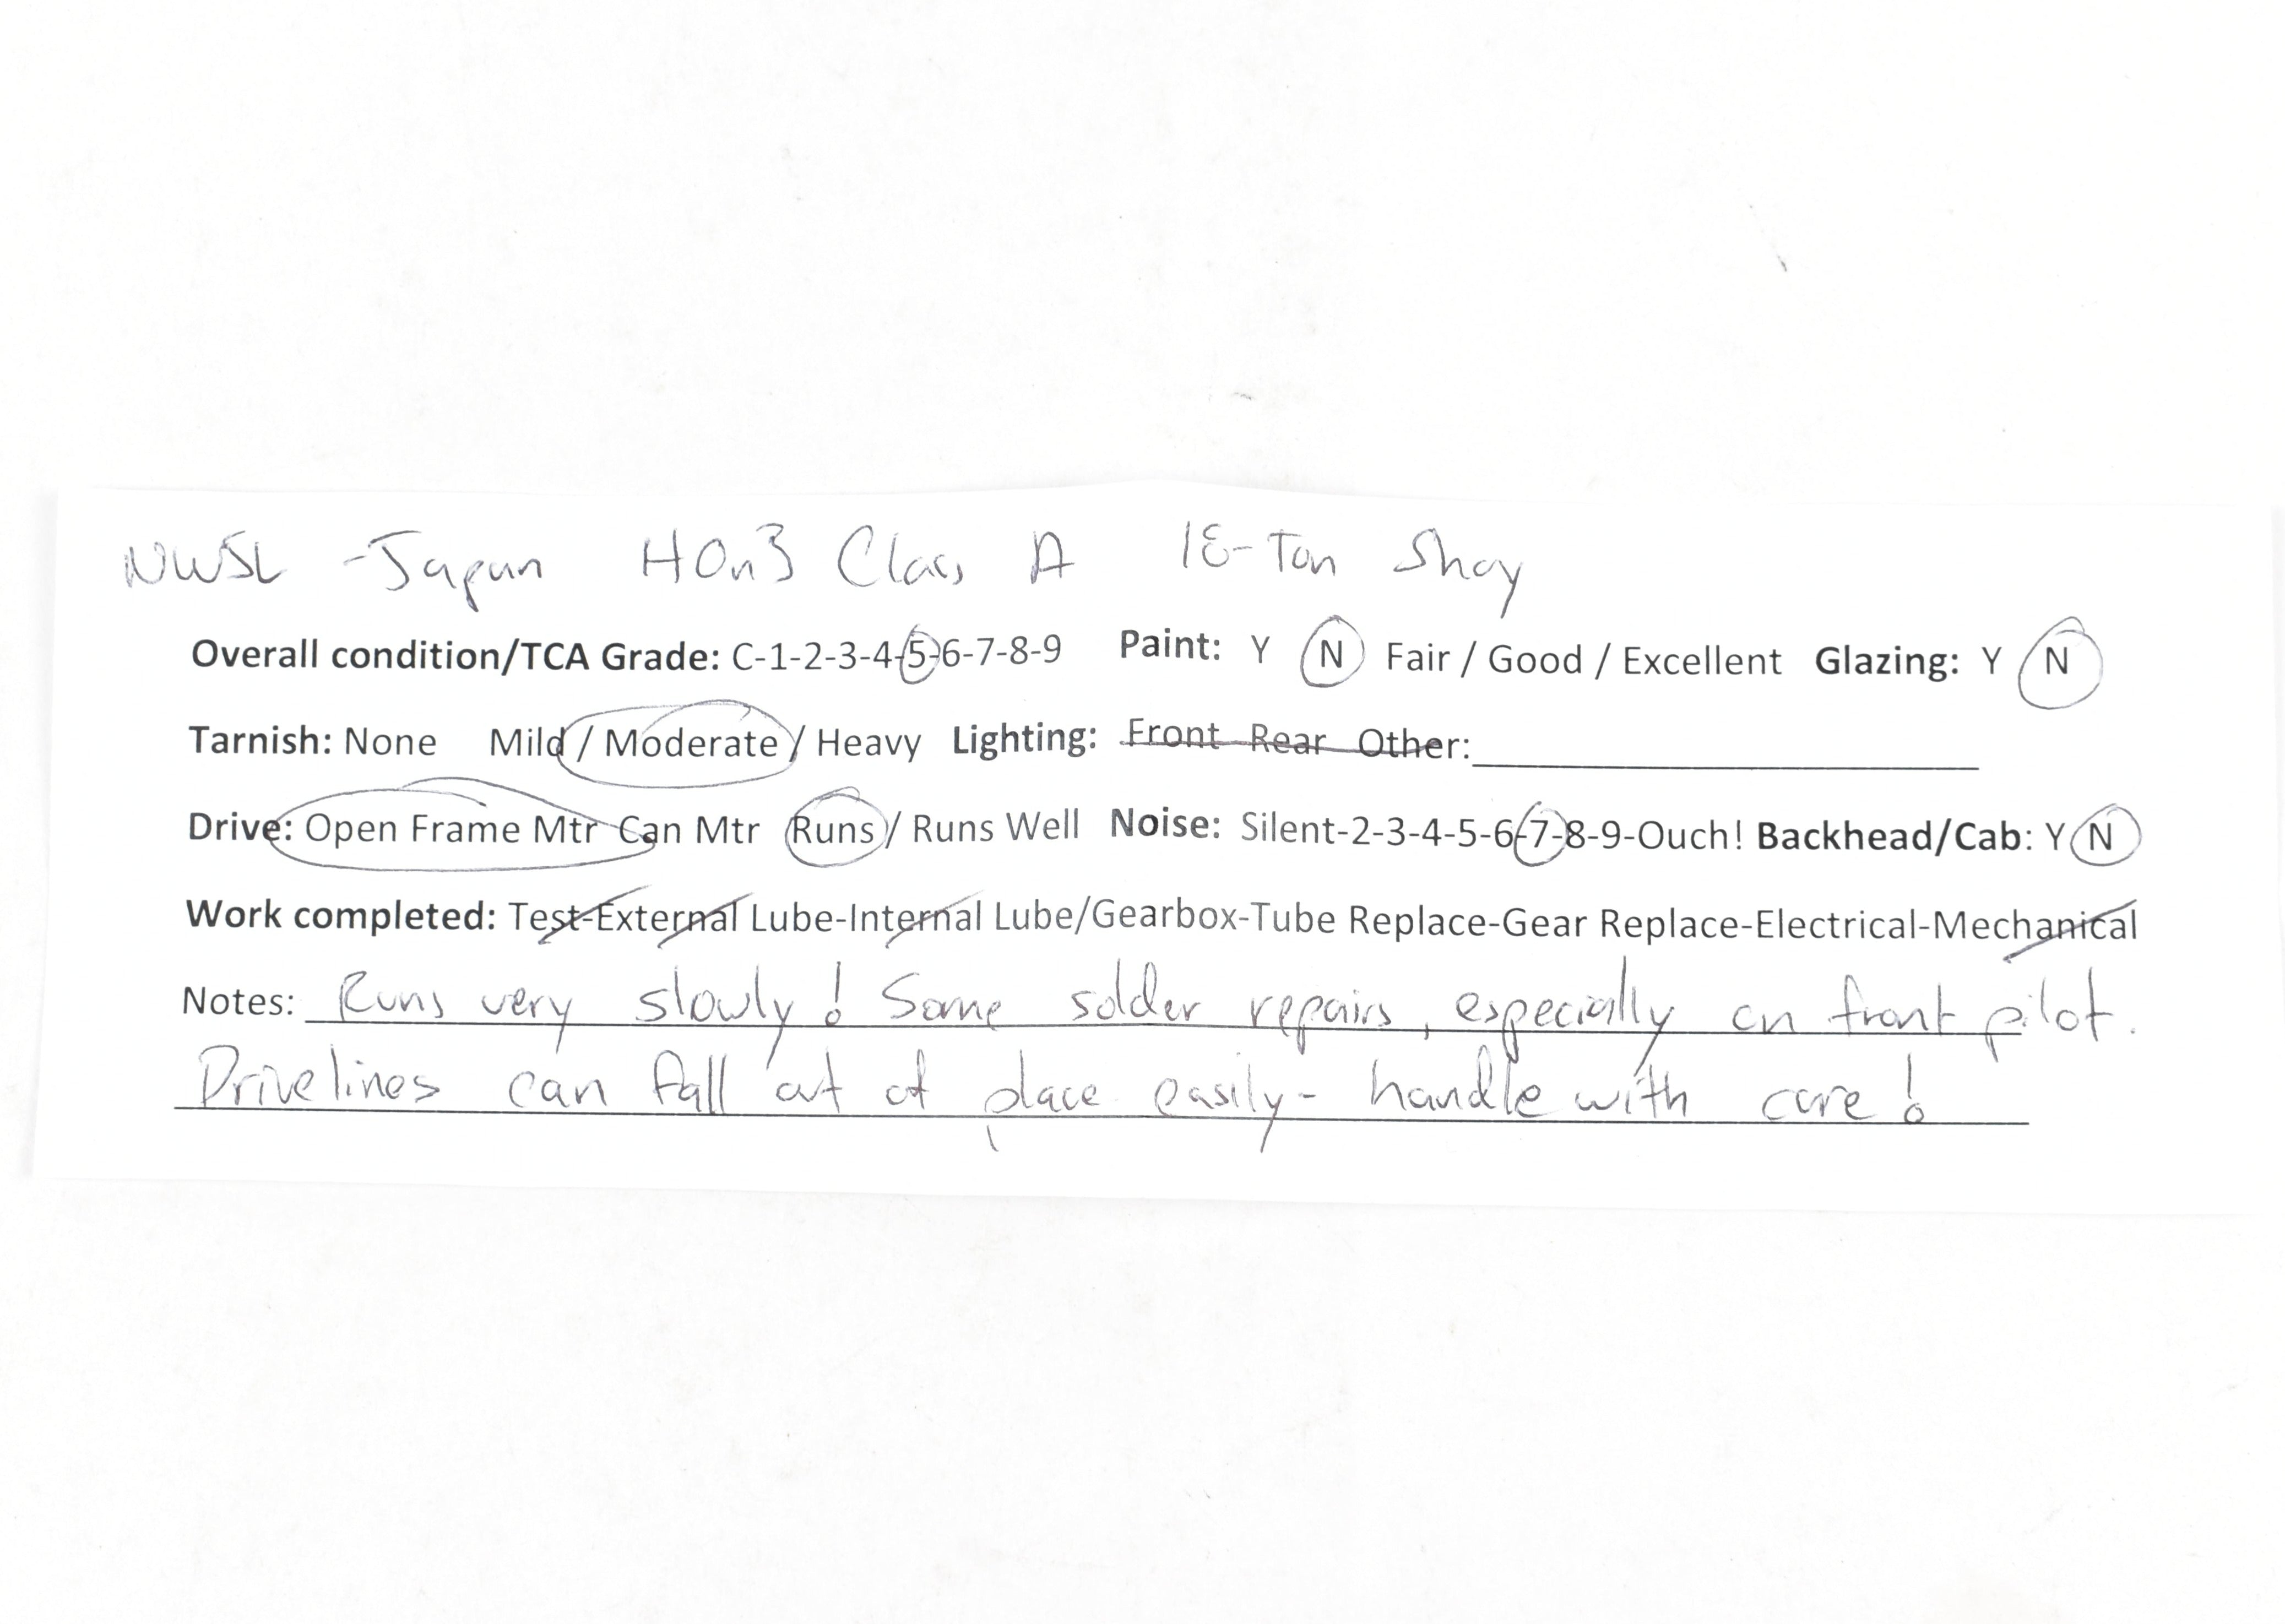 NWSL - Japan HOn3 Class A 18-Ton Shay
Overall condition/TCA Grade: C-1-2-3-4-5-6-7-8-9 Paint: Y N Fair / Good / Excellent Glazing: Y N
Tarnish: None Mild / Moderate / Heavy Lighting: Front Rear Other:
Drive: Open Frame Mtr Can Mtr Runs / Runs Well Noise: Silent-2-3-4-5-6-7-8-9-Ouch! Backhead/Cab: Y N
Work completed: Test-External Lube-Internal Lube/Gearbox-Tube Replace-Gear Replace-Electrical-Mechanical
Notes: Runs very slowly! Some solder repairs, especially on front pilot.
Drivelines can fall out of place easily - handle with care!